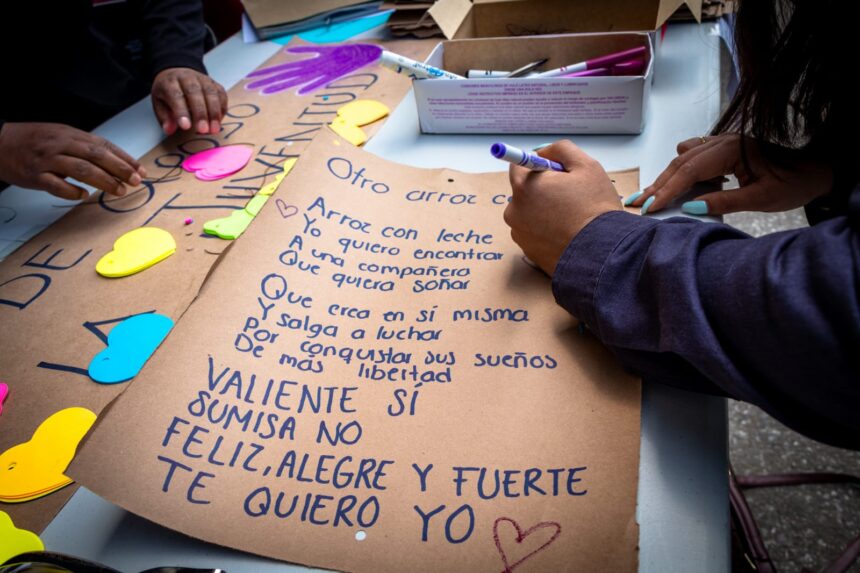 Otro arroz c
Arroz con leche
Yo quiero encontrar
A una compañera
Que quiera soñar
Que crea en sí misma
Y salga a luchar
Por conquistar sus sueños
De más libertad
VALIENTE SÍ
SUMISA NO
FELIZ, ALEGRE Y FUERTE
TE QUIERO YO
DE
JUVENTUD
LA